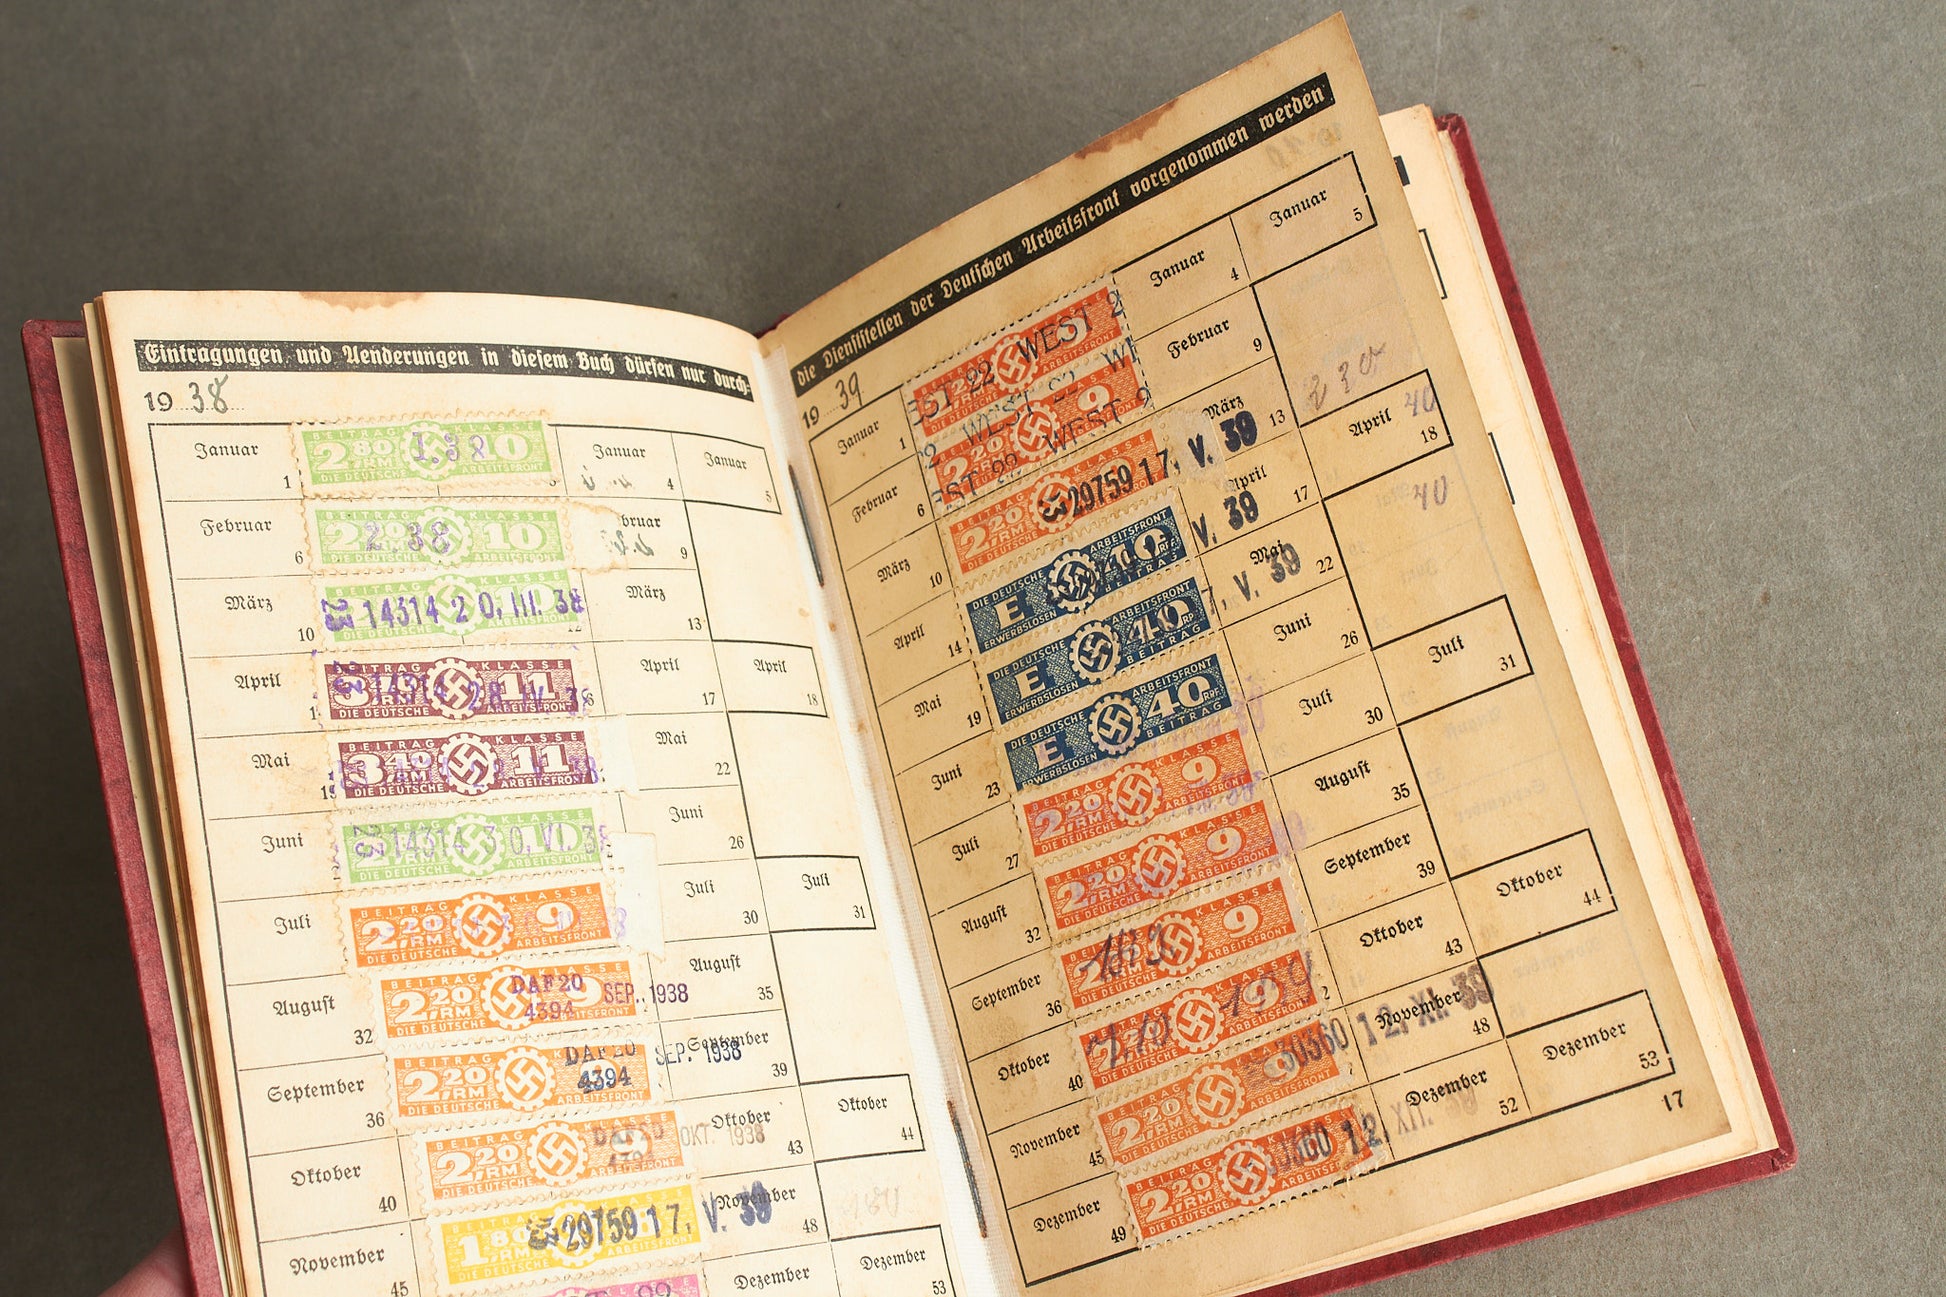 Eintragungen und Aenderungen in diesem Buch dürfen nur durch
1938
Januar 1
BEITRAG KLASSE
2 80 RM 10
DIE DEUTSCHE ARBEITSFRONT
1.38
Januar 4
Januar 5
Februar 6
BEITRAG KLASSE
2 80 RM 10
DIE DEUTSCHE ARBEITSFRONT
2.38
bruar 9
März 10
BEITRAG KLASSE
DIE DEUTSCHE ARBEITSFRONT
14314 20. III. 38
12
März 13
April
BEITRAG KLASSE
3 40 RM 11
DIE DEUTSCHE ARBEITSFRONT
14314 28. IV. 38
April 17
April 18
Mai
BEITRAG KLASSE
3 40 RM 11
DIE DEUTSCHE ARBEITSFRONT
Mai 22
Juni
14314 30. VI. 38
DIE DEUTSCHE ARBEITSFRONT
Juni 26
Juli
BEITRAG KLASSE
2 20 RM 9
DIE DEUTSCHE ARBEITSFRONT
Juli 30
Juli 31
August 32
BEITRAG KLASSE
2 20 RM 9
DIE DEUTSCHE ARBEITSFRONT
DAF 20 SEP. 1938
4394
August 35
September 36
BEITRAG
2 20 RM
DIE DEUTSCHE ARBEITSFRONT
DAF 20 SEP. 1938
4394
September 39
Oktober 40
BEITRAG KLASSE
2 20 RM
DIE DEUTSCHE ARBEITSFRONT
OKT. 1938
Oktober 43
Oktober 44
November 45
BEITRAG KLASSE
1 80 RM
DIE DEUTSCHE ARBEITSFRONT
29759 17. V. 39
November 48
Dezember
Dezember 53
die Dienststellen der Deutschen Arbeitsfront vorgenommen werden
1939
Januar 1
WEST 22 WEST 2
ARBEITSFRONT
Januar 4
Januar 5
Februar 6
9
WEST 22
Februar 9
März 10
2 20 RM
DIE DEUTSCHE
29759 17. V. 39
März 13
April 14
DIE DEUTSCHE ARBEITSFRONT
E 40 RPF.
ERWERBSLOSEN BEITRAG
V. 39
April 17
April 18
40
Mai 19
DIE DEUTSCHE ARBEITSFRONT
E 40 RPF.
ERWERBSLOSEN BEITRAG
7. V. 39
Mai 22
40
Juni 23
DIE DEUTSCHE ARBEITSFRONT
E 40 RPF.
ERWERBSLOSEN BEITRAG
Juni 26
Juli 27
BEITRAG KLASSE
2 20 RM 9
DIE DEUTSCHE ARBEITSFRONT
Juli 30
Juli 31
August 32
BEITRAG KLASSE
2 20 RM 9
DIE DEUTSCHE ARBEITSFRONT
August 35
September 36
BEITRAG KLASSE
2 20 RM 9
DIE DEUTSCHE ARBEITSFRONT
September 39
Oktober 40
BEITRAG KLASSE
2 20 RM 9
DIE DEUTSCHE ARBEITSFRONT
1.10 1939
Oktober 43
Oktober 44
November 45
BEITRAG KLASSE
2 20 RM
DIE DEUTSCHE ARBEITSFRONT
30360 12. XI. 39
November 48
Dezember 49
BEITRAG
2 20 RM
DIE DEUTSCHE ARBEITSFRONT
12. XII. 39
Dezember 52
Dezember 53
17